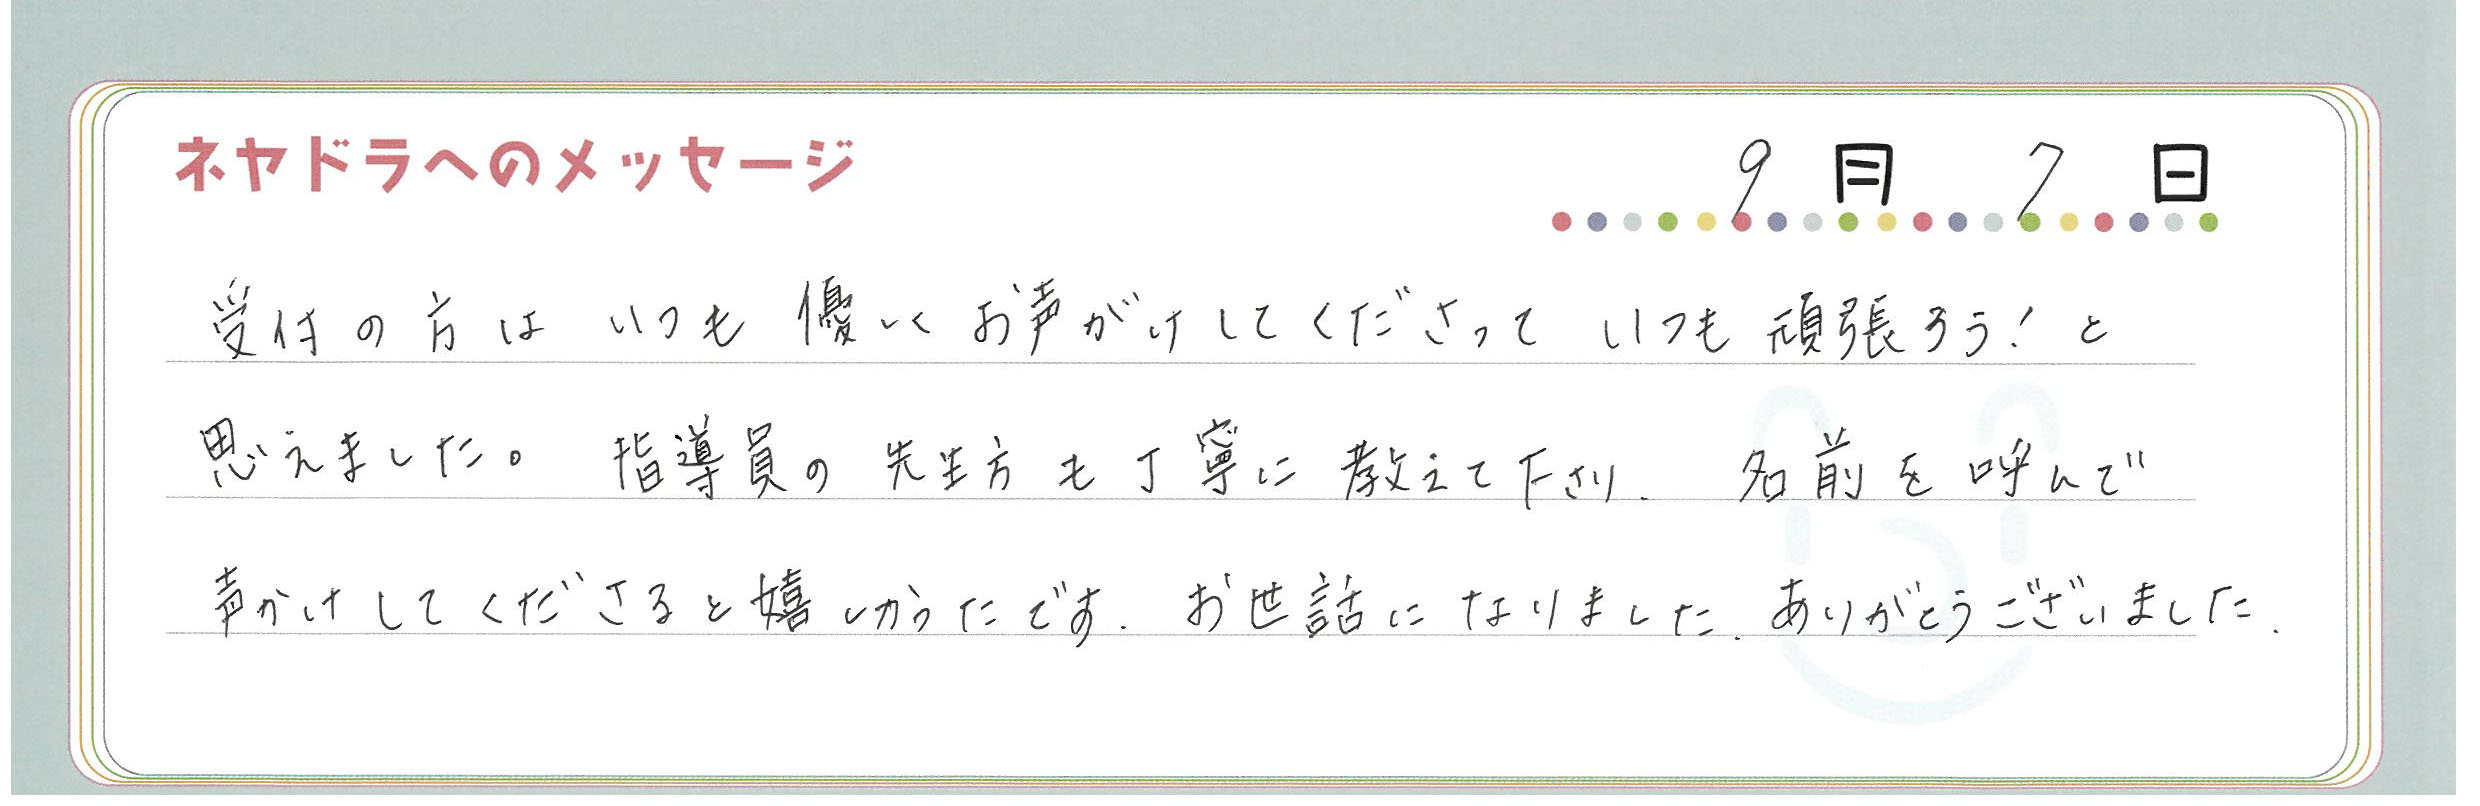 ネヤドラへのメッセージ
9月 7日
受付の方は いつも 優しく お声がけしてくださって いつも 頑張ろう！と
思えました。 指導員の 先生方も丁寧に 教えて下さり. 名前を呼んで
声かけしてくださると嬉しかったです. お世話になりました. ありがとうございました.